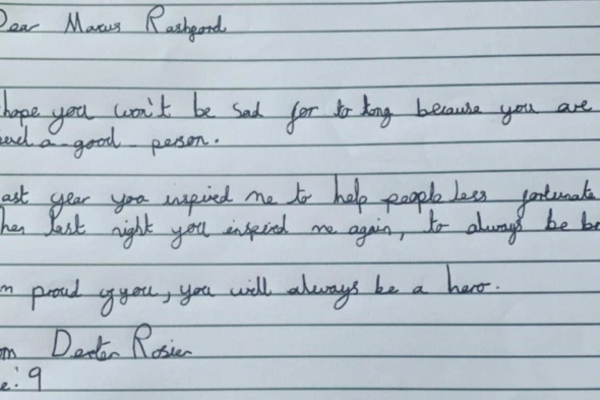 Dear Marcus Rashford
hope you won't be sad for to long because you are
such a good person.
last year you inspired me to help people less fortunate
then last night you inspired me again, to always be
proud of you, you will always be a hero.
Dexter Rosier
9